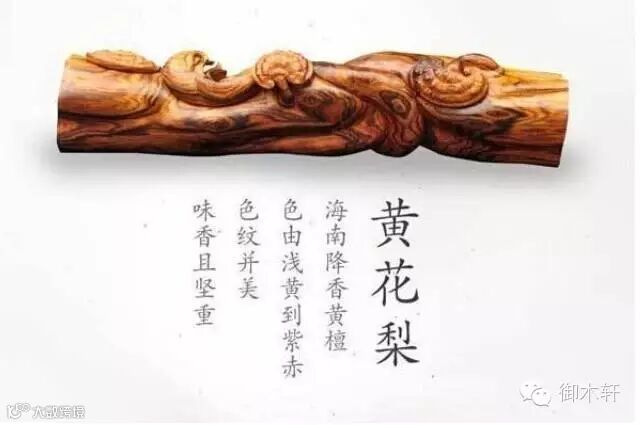 黄花梨
海南降香黄檀
色由浅黄到紫赤
色纹并美
味香且坚重
御木轩
大数跨境